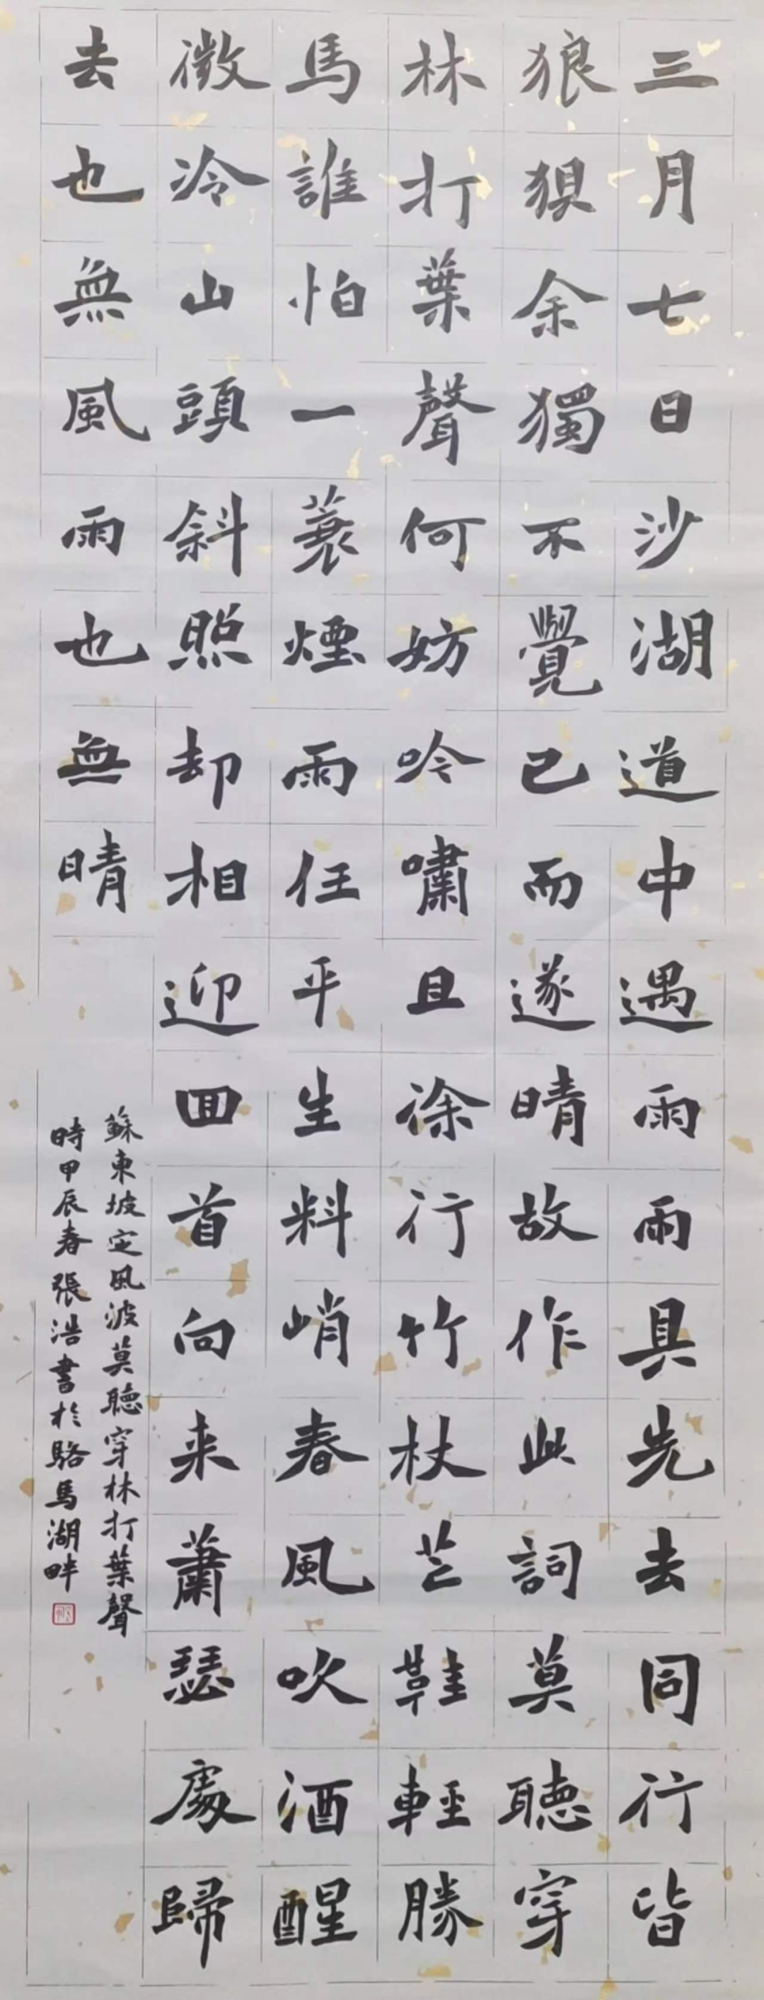 三月七日沙湖道中遇雨雨具先去同行皆
狼狽余獨不覺已而遂晴故作此詞莫聽穿
林打葉聲何妨吟嘯且涂行竹杖芒鞋輕勝
馬誰怕一蓑煙雨任平生料峭春風吹酒醒
微冷山頭斜照却相迎回首向来蕭瑟處歸
去也無風雨也無晴
蘇東坡定風波莫聽穿林打葉聲
時甲辰春張浩書於駱馬湖畔